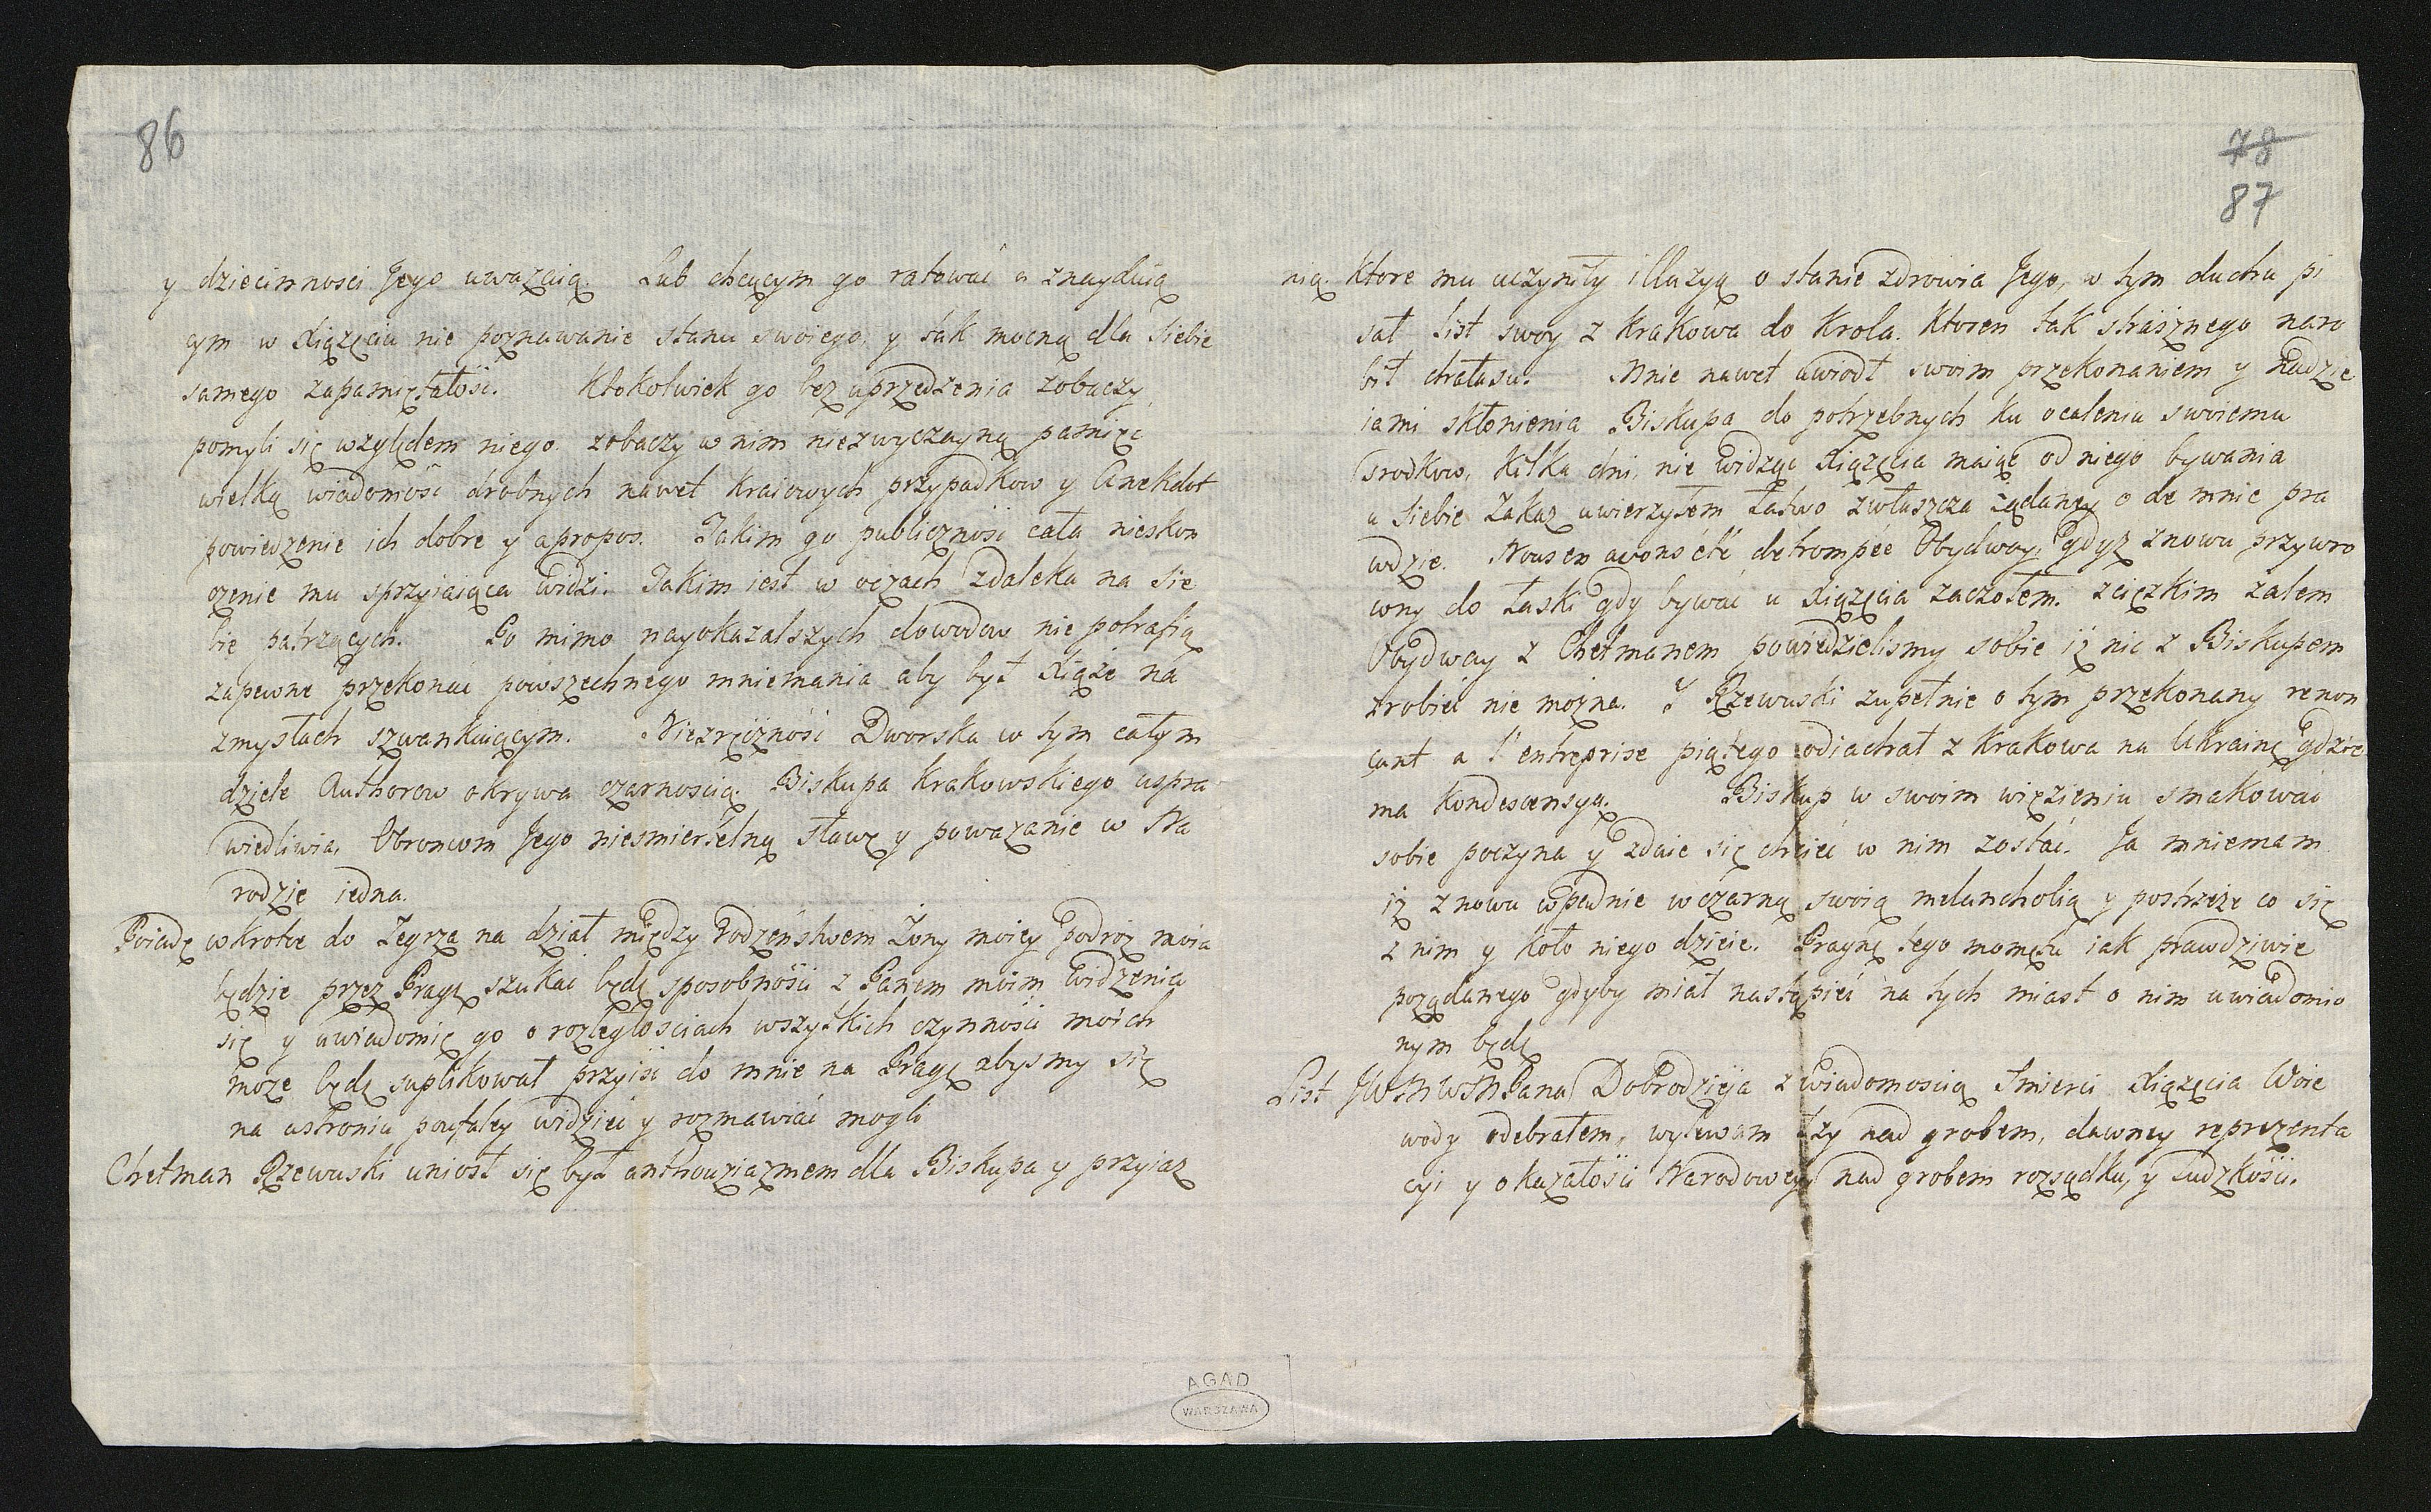 86
y dziecinnosci Jego uważaią. Lub chcącym go ratować a znayduią
cym w Xiążęciu nie poznawanie stanu swoiego, y tak mocną dla siebie
samego zapamiętałość. Ktokolwiek go bez uprzedzenia zobaczy,
pomyli się względem niego. zobaczy w nim niezwyczayną pamięć
wielką wiadomość drobnych nawet Kraiowych przypadkow y Anekdot
powiedzenie ich dobre y apropos. Takim go publiczność cała nieskon
czenie mu sprzyiaiąca widzi. Takim iest w oczach zdaleka na sie
bie patrzących. Po mimo nayokazalszych dowodow nie potrafią
zapewne przekonać powszechnego mniemania aby był Xiąże na
zmysłach szwankuiącym. Niezręczność Dworska w tym całym
dziele Authorow okrywa czarnoscią. Biskupa Krakowskiego uspra
wiedliwia, Obroncom Jego niesmiertelną sławę y poważanie w Na
rodzie iedna.
Poiadę wkrotce do Zegrza na dział między rodzeństwem Żony moiey podroż moia
będzie przez Pragę szukać będę sposobności z Panem moim widzenia
się y uwiadomię go o rozległosciach wszystkich czynności moich
może będę suplikował przyiść do mnie na Pragę abysmy się
na ustroniu poufałey widzieć y rozmawiać mogli
Chetman Rzewuski uniosł się był anthouziazmem dla Biskupa y przyiaz
78
87
nią. Ktore mu uczyniły illuzyą o stanie zdrowia Jego, w tym duchu pi
sał List swoy z Krakowa do Krola. Ktoren tak strasznego naro
bił chałasu. Mnie nawet uwiodł swoim przekonaniem y Nadzie
iami skłonienia Biskupa do potrzebnych ku ocaleniu swoiemu
srodkow, Kilka dni nie widząc Xiążęcia maiąc od niego bywania
u siebie zakaz uwierzyłem łatwo zwłaszcza żądaney o de mnie pra
wdzie. Nous en avons été detrompée Obydway, gdyż znowu przywro
cony do Łaski gdy bywać u Xiążęcia zaczołem. zcięzkim żalem
Obydway z Chetmanem powiedzielismy sobie iż nic z Biskupem
zrobić nie można. Y Rzewuski zupełnie o tym przekonany renon
çant a l'entreprise piątego odiachał z Krakowa na Ukrainę gdzie
ma Kondescensyą. Biskup w swoim więzieniu smakować
sobie poczyna y zdaie się chcieć w nim zostać. Ja mniemam
iż znowu wpadnie w czarną swoią melancholią y postrzeże co się
z nim y koło niego dzieie. Pragnę tego momętu iak prawdziwie
pożądanego gdyby miał nastąpieć na tych miast o nim uwiadomio
nym będę
List JWMWMPana Dobrodzieja z wiadomoscią Smierci Xiążęcia Woie
wody odebrałem, wylewam łzy nad grobem, dawney reprezenta
cyi y okazałości Narodowey, nad grobem rozsądku, y Ludzkości.
AGAD
WARSZAWA